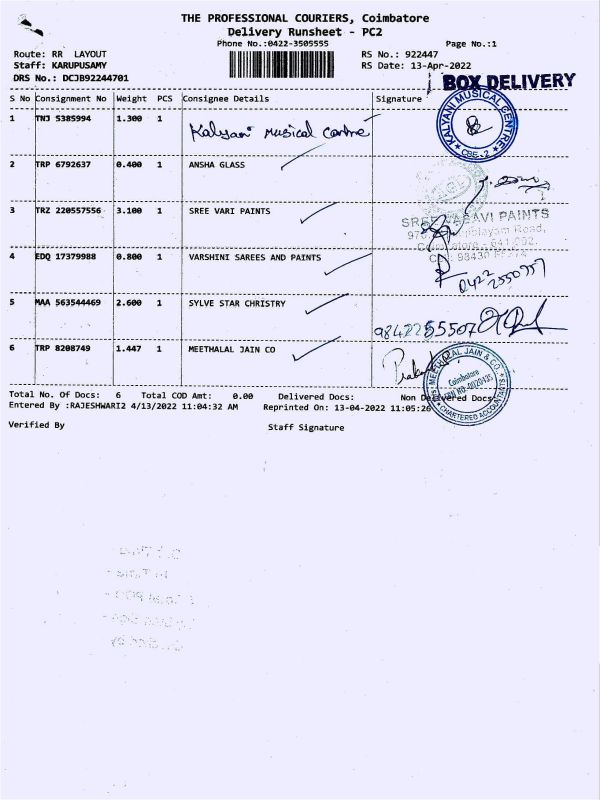 THE PROFESSIONAL COURIERS, Coimbatore
Delivery Runsheet - PC2
Phone No.:0422-3505555
Page No.:1
Route: RR LAYOUT
RS No.: 922447
Staff: KARUPUSAMY
RS Date: 13-Apr-2022
DRS No.: DCJB92244701
BOX DELIVERY
S No Consignment No Weight PCS Consignee Details Signature
1 TNJ 5385994 1.300 1 Kalyani Musical Centre
KALYANI MUSICAL CENTRE
CBE-2
2 TRP 6792637 0.400 1 ANSHA GLASS
3 TRZ 220557556 3.100 1 SREE VARI PAINTS
PAINTS
Road,
4 EDQ 17379988 0.800 1 VARSHINI SAREES AND PAINTS
0422
2550757
5 MAA 563544469 2.600 1 SYLVE STAR CHRISTRY
9842255507
6 TRP 8208749 1.447 1 MEETHALAL JAIN CO
MEETHALAL JAIN & CO.
Coimbatore
CHARTERED ACCOUNTANTS
Total No. Of Docs: 6 Total COD Amt: 0.00 Delivered Docs: Non Delivered Docs:
Entered By :RAJESHWARI2 4/13/2022 11:04:32 AM Reprinted On: 13-04-2022 11:05:26
Verified By Staff Signature